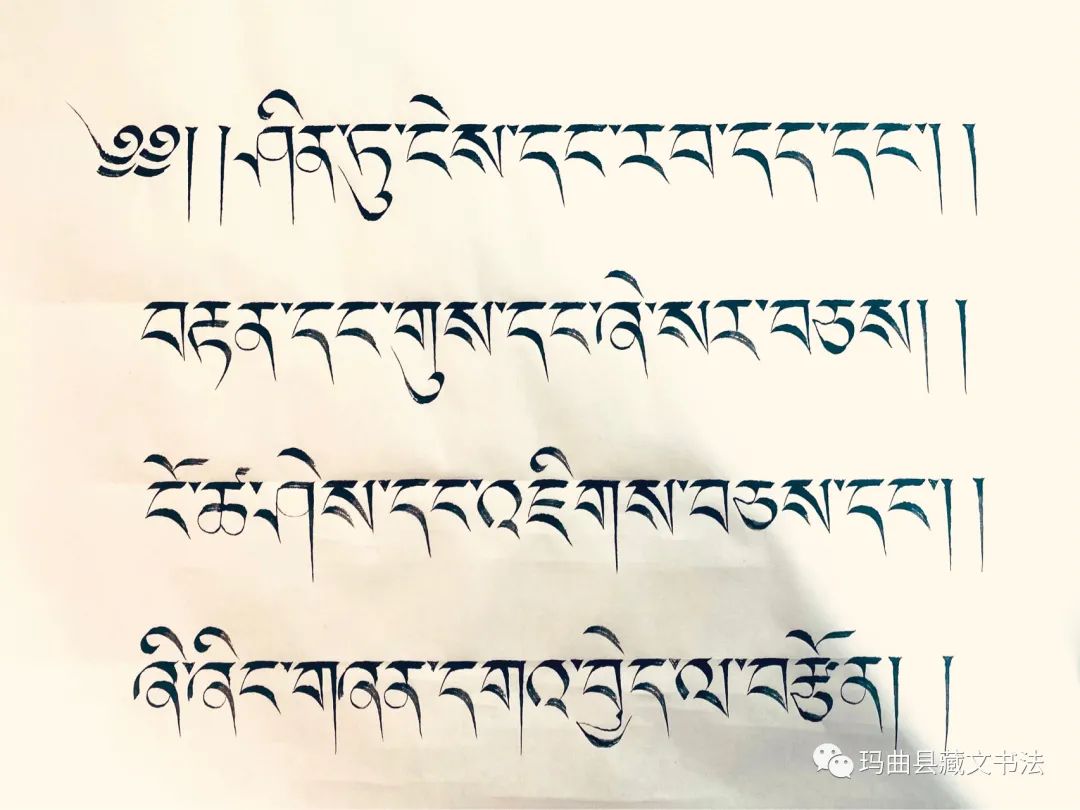 ༄༅། །ཤིན་ཏུ་ངེས་དང་རབ་དད་དང་། །
བརྟན་དང་གུས་དང་ཞེ་སར་བཅས། །
ངོ་ཚ་ཤེས་དང་འཇིགས་བཅས་དང་། །
ཞི་ཞིང་གཞན་དགའ་བྱེད་ལ་བརྩོན། །
玛曲县藏文书法